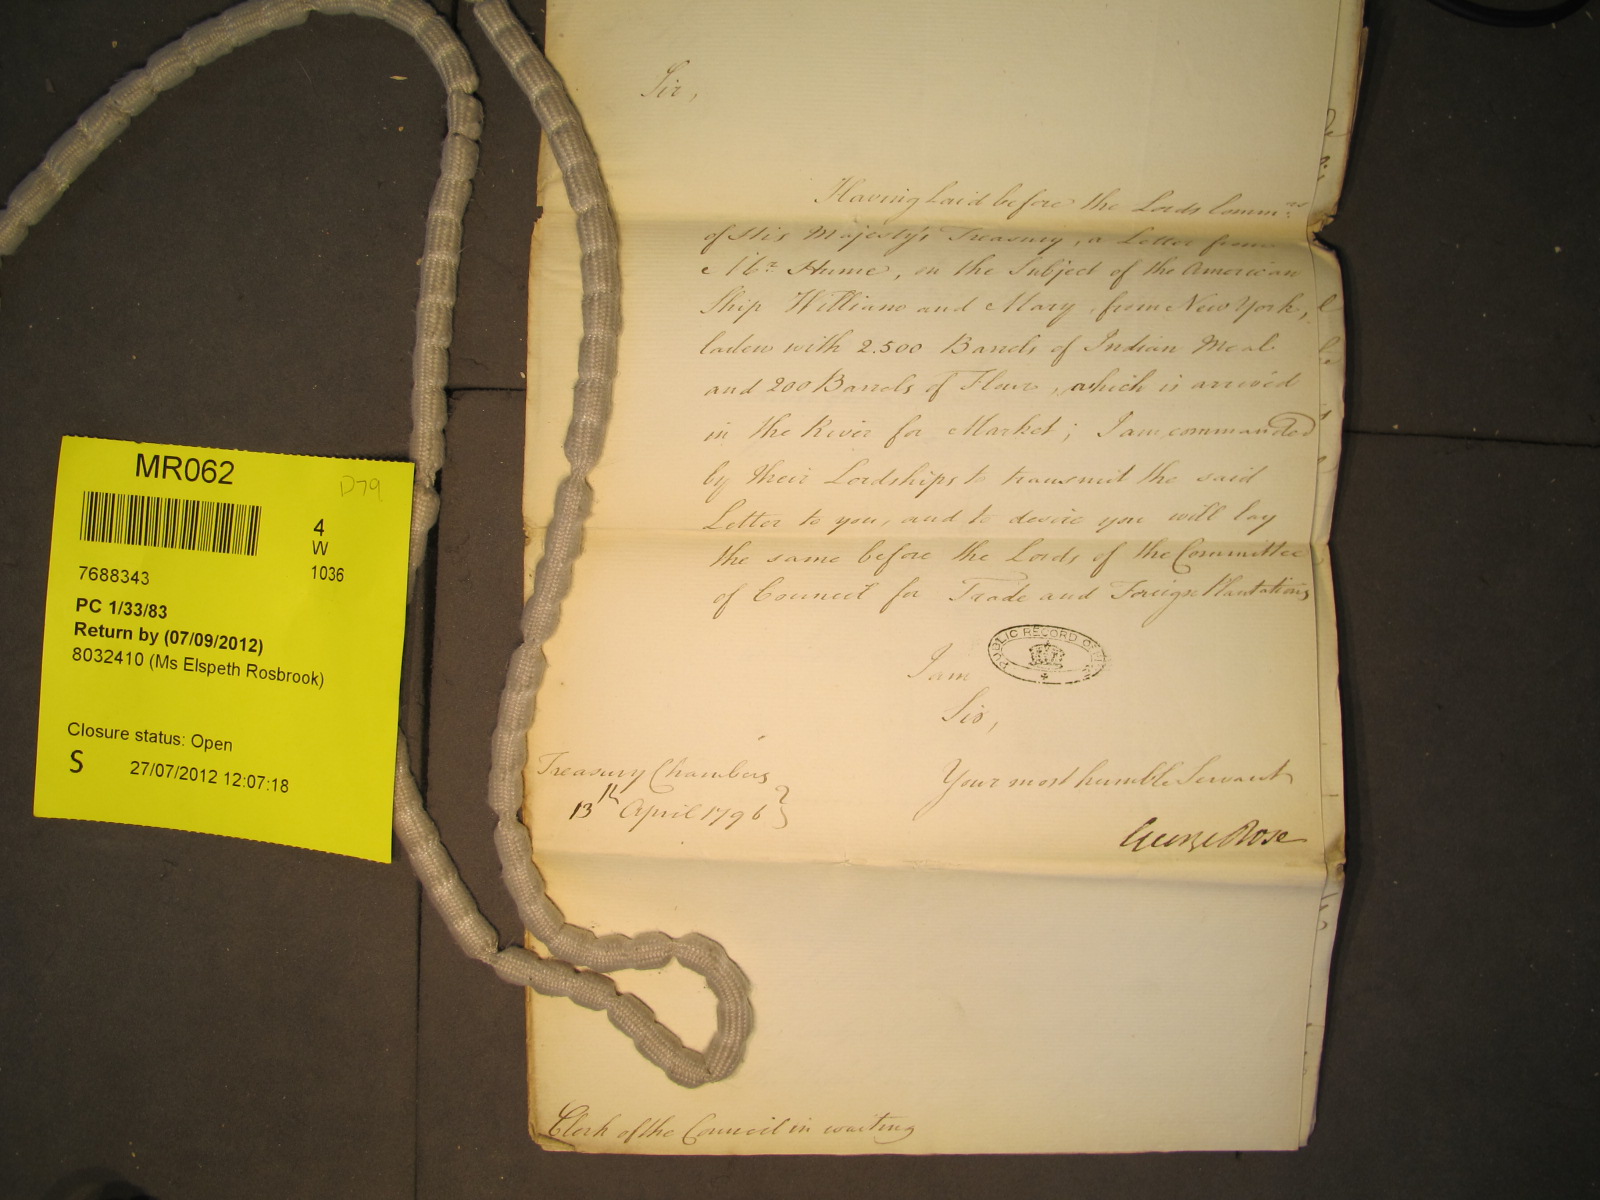 Sir,
Having laid before the Lords Comm:rs
of His Majesty's Treasury, a Letter from
Mr. Hume, on the Subject of the American
Ship William and Mary, from New York,
laden with 2.500 Barrels of Indian Meal
and 200 Barrels of Flour, which is arrived
in the River for Market; I am commanded
by their Lordships to transmit the said
Letter to you, and to desire you will lay
the same before the Lords of the Committee
of Council for Trade and Foreign Plantations
I am
Sir,
Your most humble Servant
George Rose
Treasury Chambers
13th April 1796
Clerk of the Council in waiting
PUBLIC RECORD OFFICE
MR062
D79
4
W
1036
7688343
PC 1/33/83
Return by (07/09/2012)
8032410 (Ms Elspeth Rosbrook)
Closure status: Open
S 27/07/2012 12:07:18